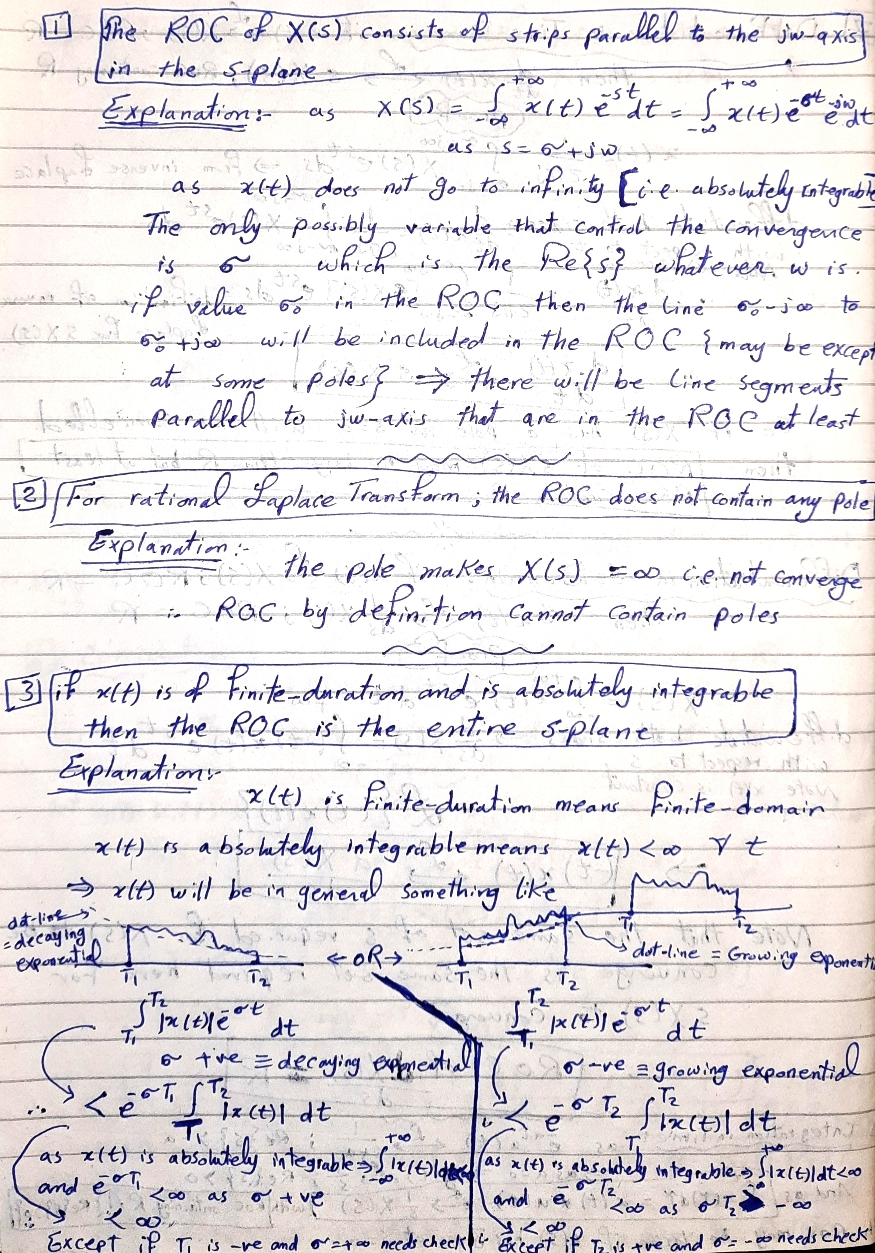 1 The ROC of X(s) consists of strips parallel to the jw-axis
in the s-plane.
Explanation:- as X(s) = ∫_{-∞}^{+∞} x(t) e^{-st} dt = ∫_{-∞}^{+∞} x(t) e^{-σt} e^{-jω} dt
as s = σ + jω
as x(t) does not go to infinity [i.e. absolutely integrable]
The only possibly variable that control the convergence
is σ which is the Re{s} whatever w is.
if value σ₀ in the ROC then the line σ₀-j∞ to
σ₀+j∞ will be included in the ROC {may be except
at some poles} ⇒ there will be line segments
parallel to jw-axis that are in the ROC at least
2 For rational Laplace Transform ; the ROC does not contain any pole
Explanation:-
the pole makes X(s) = ∞ i.e. not converge
∴ ROC by definition cannot contain poles
3 if x(t) is of finite-duration and is absolutely integrable
then the ROC is the entire s-plane
Explanation:-
x(t) is finite-duration means finite-domain
x(t) is absolutely integrable means x(t) < ∞ ∀ t
⇒ x(t) will be in general something like
T₁ T₂
dot-line → = decaying exponential
T₁ T₂
← OR →
T₁ T₂
dot-line = Growing exponential
∫_{T₁}^{T₂} |x(t)| e^{-σt} dt
σ +ve ≡ decaying exponential
∴ < e^{-σT₁} ∫_{T₁}^{T₂} |x(t)| dt
as x(t) is absolutely integrable ⇒ ∫_{-∞}^{+∞} |x(t)| dt<∞
and e^{-σT₁} < ∞ as σ +ve
∴ < ∞
Except if T₁ is -ve and σ=+∞ needs check
∫_{T₁}^{T₂} |x(t)| e^{-σt} dt
σ -ve ≡ growing exponential
∴ < e^{-σT₂} ∫_{T₁}^{T₂} |x(t)| dt
as x(t) is absolutely integrable ⇒ ∫_{-∞}^{+∞} |x(t)| dt<∞
and e^{-σT₂} < ∞ as σT₂ -∞
∴ < ∞
Except if T₂ is +ve and σ=-∞ needs check